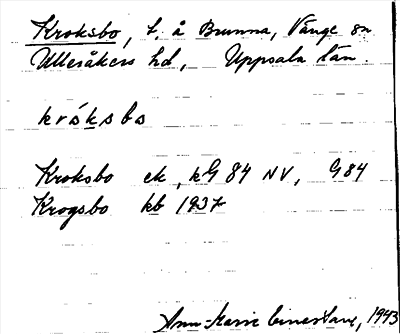 Kroksbo, t. å Brunna, Vänge sn
Ulleråkers hd, Uppsala län.
króksbo
Kroksbo ek, kG 84 NV, G 84
Krogsbo kb 1937
Ann-Marie 1943